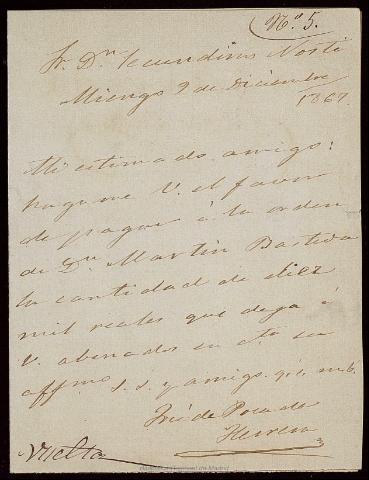 Nº 5.
Sr. Dn. Secundino
Miengo 9 de Diciembre
1867.
Mi estimado amigo:
hagame V. el favor
de pagar á la orden
de Dn. Martin Bastida
la cantidad de diez
mil reales que deja á
V. abonados en cta su
affmo. s. s. y amigo q. b. m. b.
José de Posada
Herrera
Vuelta